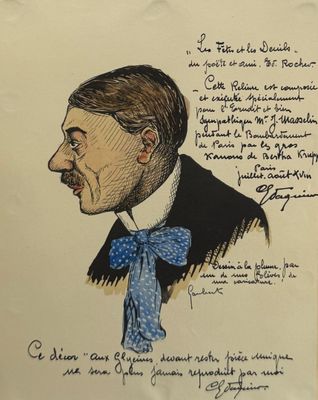 "Les Fêtes et les Deuils"
du poète et ami. Ed. Rocher
Cette Reliure est composée
et exécutée spécialement
pour l'Erudit et bien
Sympathique Mr J. Masselin
pendant le Bombardement
de Paris par les gros
Kanons de Bertha Krupp
Paris
juillet, août
Dessin à la plume, par
un de mes Elèves, de
ma caricature.
Ce décor "aux Glycines devant rester pièce unique
ne sera plus jamais reproduit par moi